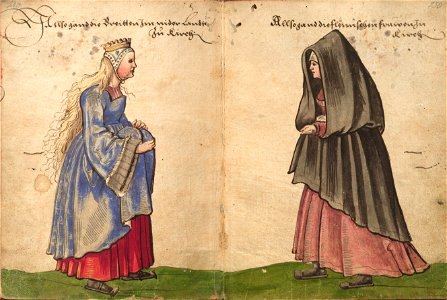 Allso gand die Breitten Im nider Landt
Zu kirch
Allso gand die flemischen frauwen Zu
kirch